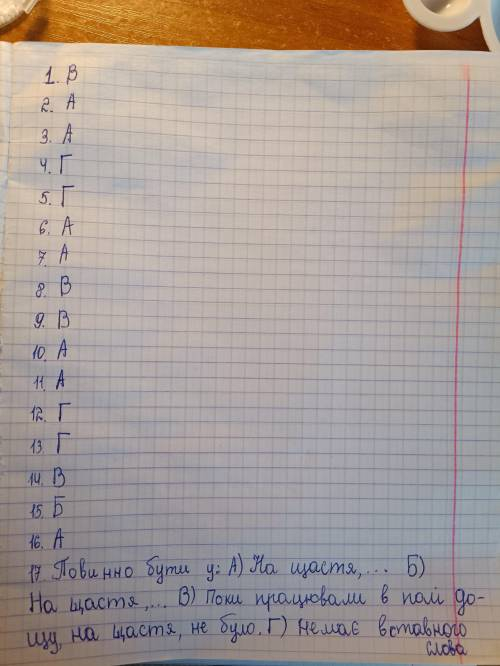 1. В
2. А
3. А
4. Г
5. Г
6. А
7. А
8. В
9. В
10. А
11. А
12. Г
13. Г
14. В
15. Б
16. А
17 Повинно бути у: А) На щастя,... Б)
На щастя,... В) Поки працювали в полі до-
щу, на щастя, не було. Г) Немає вставного
слова